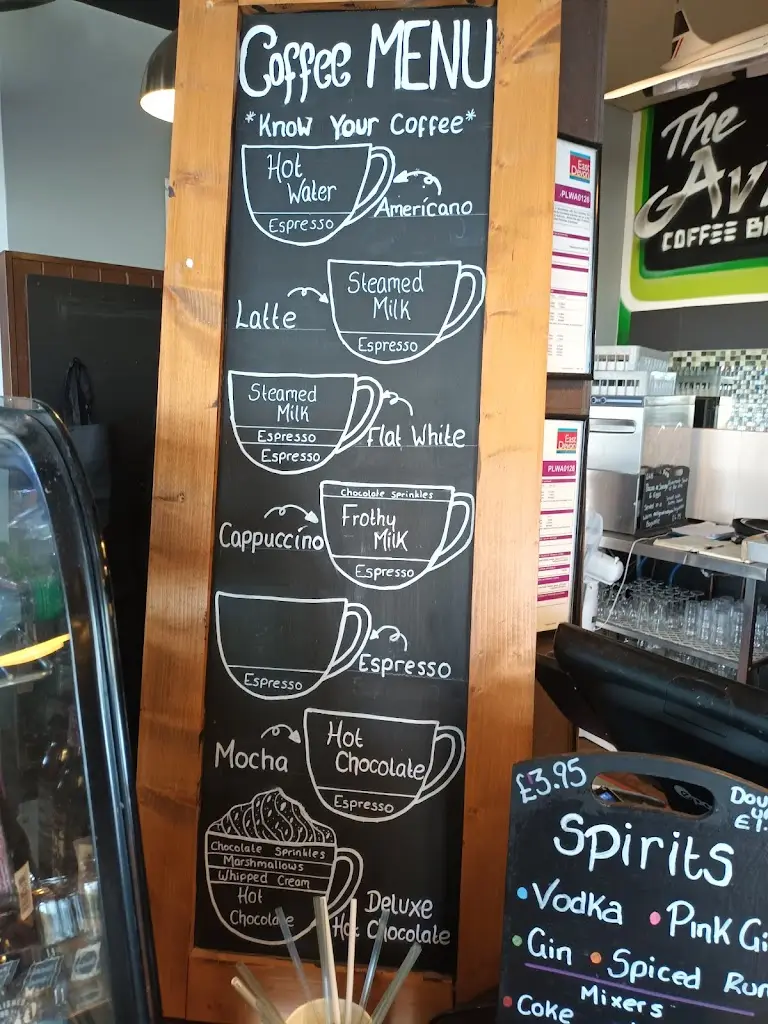 Coffee MENU
*Know Your Coffee*
Hot
Water
Espresso
Americano
Latte
Steamed
Milk
Espresso
Steamed
Milk
Espresso
Espresso
Flat White
Cappuccino
Chocolate Sprinkles
Frothy
Milk
Espresso
Espresso
Espresso
Mocha
Hot
Chocolate
Espresso
Chocolate Sprinkles
Marshmallows
Whipped Cream
Hot
Chocolate
Deluxe
Hot Chocolate
East
Devon
PLWA0126
East
Devon
PLWA0126
The
COFFEE
£3.95
Spirits
Vodka
Pink
Gin
Spiced
Mixers
Coke